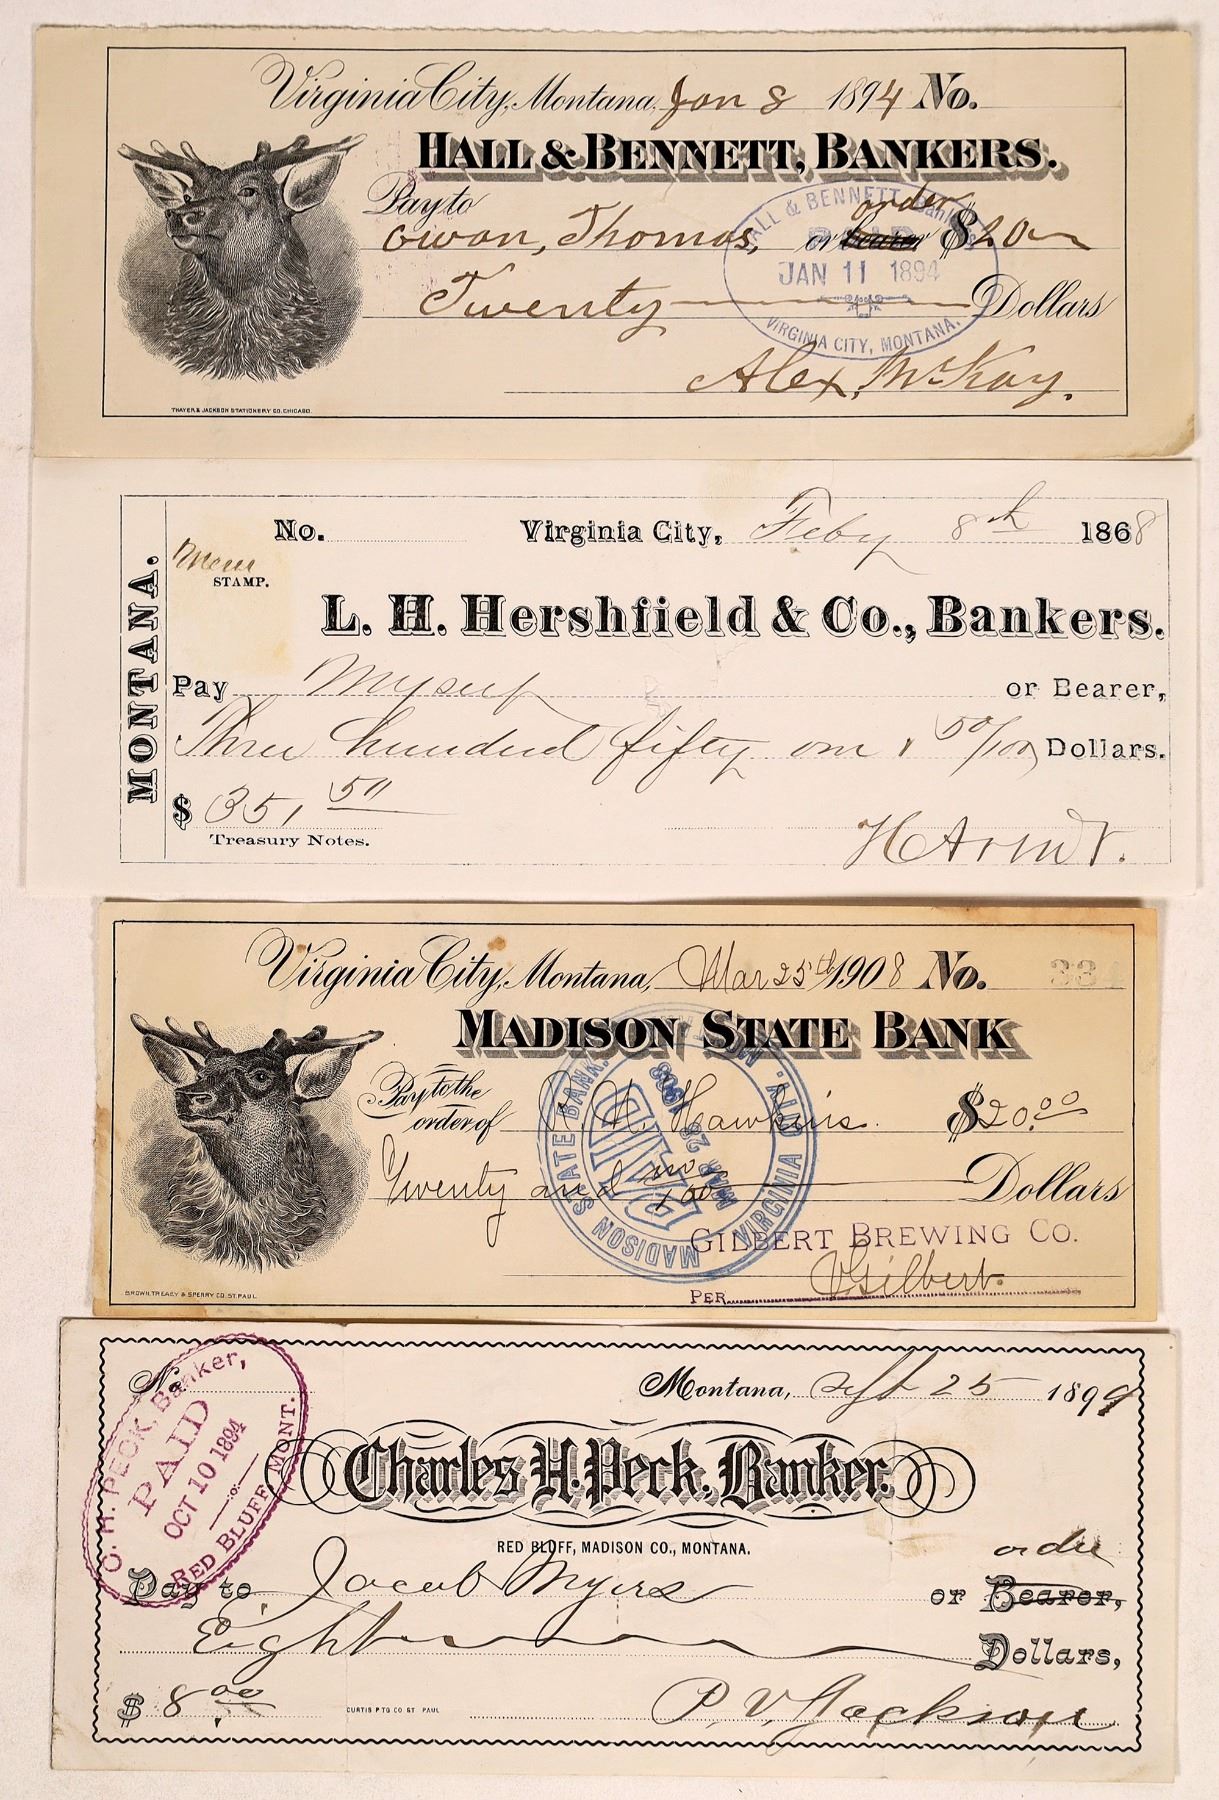 Virginia City, Montana, Jan 8 1894 No.
HALL & BENNETT, BANKERS.
Pay to
order
Owen, Thomas, or bearer $20
HALL & BENNETT Bankers
PAID
JAN 11 1894
VIRGINIA CITY, MONTANA.
Twenty Dollars
Alex, McKay.
THAYER & JACKSON STATIONERY CO. CHICAGO.
MONTANA.
No. Virginia City, Feby 8th 1868
STAMP.
L. H. Hershfield & Co., Bankers.
Pay Myself or Bearer,
Three hundred fifty one & 50/100 Dollars.
$ 351 50
Treasury Notes.
Virginia City, Montana, Mar 25th 1908 No. 334
MADISON STATE BANK
Pay to the
order of Hawkins. $20.00
MADISON STATE BANK. VIRGINIA CITY, MONT.
PAID
MAR 28 1908
Twenty and no/100 Dollars
GILBERT BREWING CO.
PER Gilbert.
BROWN, TREACY & SPERRY CO. ST. PAUL
C. H. PECK, Banker,
PAID
OCT 10 1894
RED BLUFF, MONT.
No.
Montana, Sept 25 1894
Charles H. Peck, Banker.
RED BLUFF, MADISON CO., MONTANA.
order
Pay to Jacob Myers or Bearer,
Eight Dollars,
$ 8.00
CURTIS PTG CO ST PAUL
P. V. Jackson